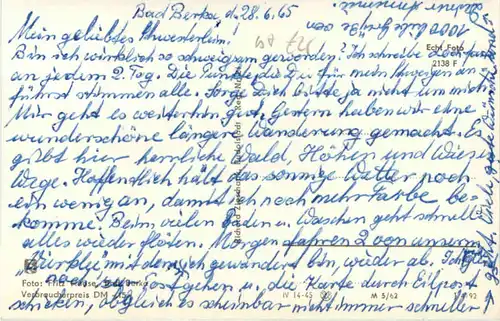 Bad Berka, d. 28.6.65
Mein geliebtes Schwesterlein!
Bin ich wirklich so schweigsam geworden? Ich schreibe doch fast
an jedem 2. Tag. Die Punkte, die Du für mein Schweigen an-
führst stimmen alle. Sorge Dich bitte ja nicht um mich.
Mir geht es weiterhin gut. Gestern haben wir eine
wunderschöne längere Wanderung gemacht. Es
gibt hier herrliche Wald, Höhen und Wiesen
Wege. Hoffentlich hält das sonnige Wetter noch
ein wenig an, damit ich noch mehr Farbe be-
komme. Beim vielen Baden u. Waschen geht schnell
alles wieder flöten. Morgen fahren 2 von unserm
mit denen ich gewandert bin, wieder ab. Ich
zur Post gehen u. die Karte durch Eilpost
schicken, obgleich es scheinbar nicht immer schneller
1000 liebe Grüße von
Deiner
Echt Foto
2138 F
Foto: Fritz Bad Berka
Verbraucherpreis DM
IV 14-45
M 5/62